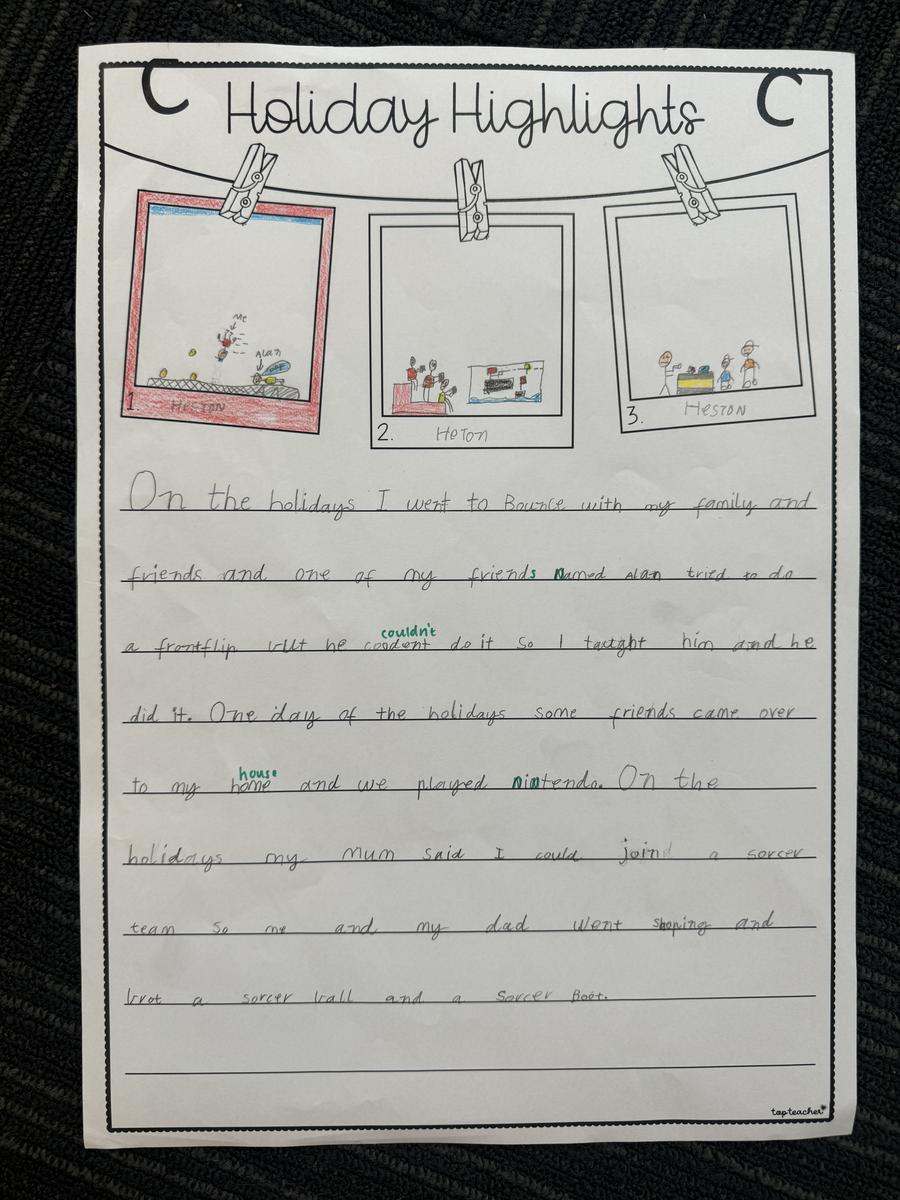 C Holiday Highlights C
Me
Alan
1 HESTON
2. HeTON
3. HESTON
On the holidays I went to Bounce with my family and
friends and one of my friends Named Alan tried to do
a frontflip but he coodent do it so I taught him and he
couldn't
did it. One day of the holidays some friends came over
to my home and we played Nintendo. On the
house
holidays my Mum said I could join a sorcer
team so me and my dad went shoping and
brot a sorcer ball and a sorcer Boot.
tap teacher